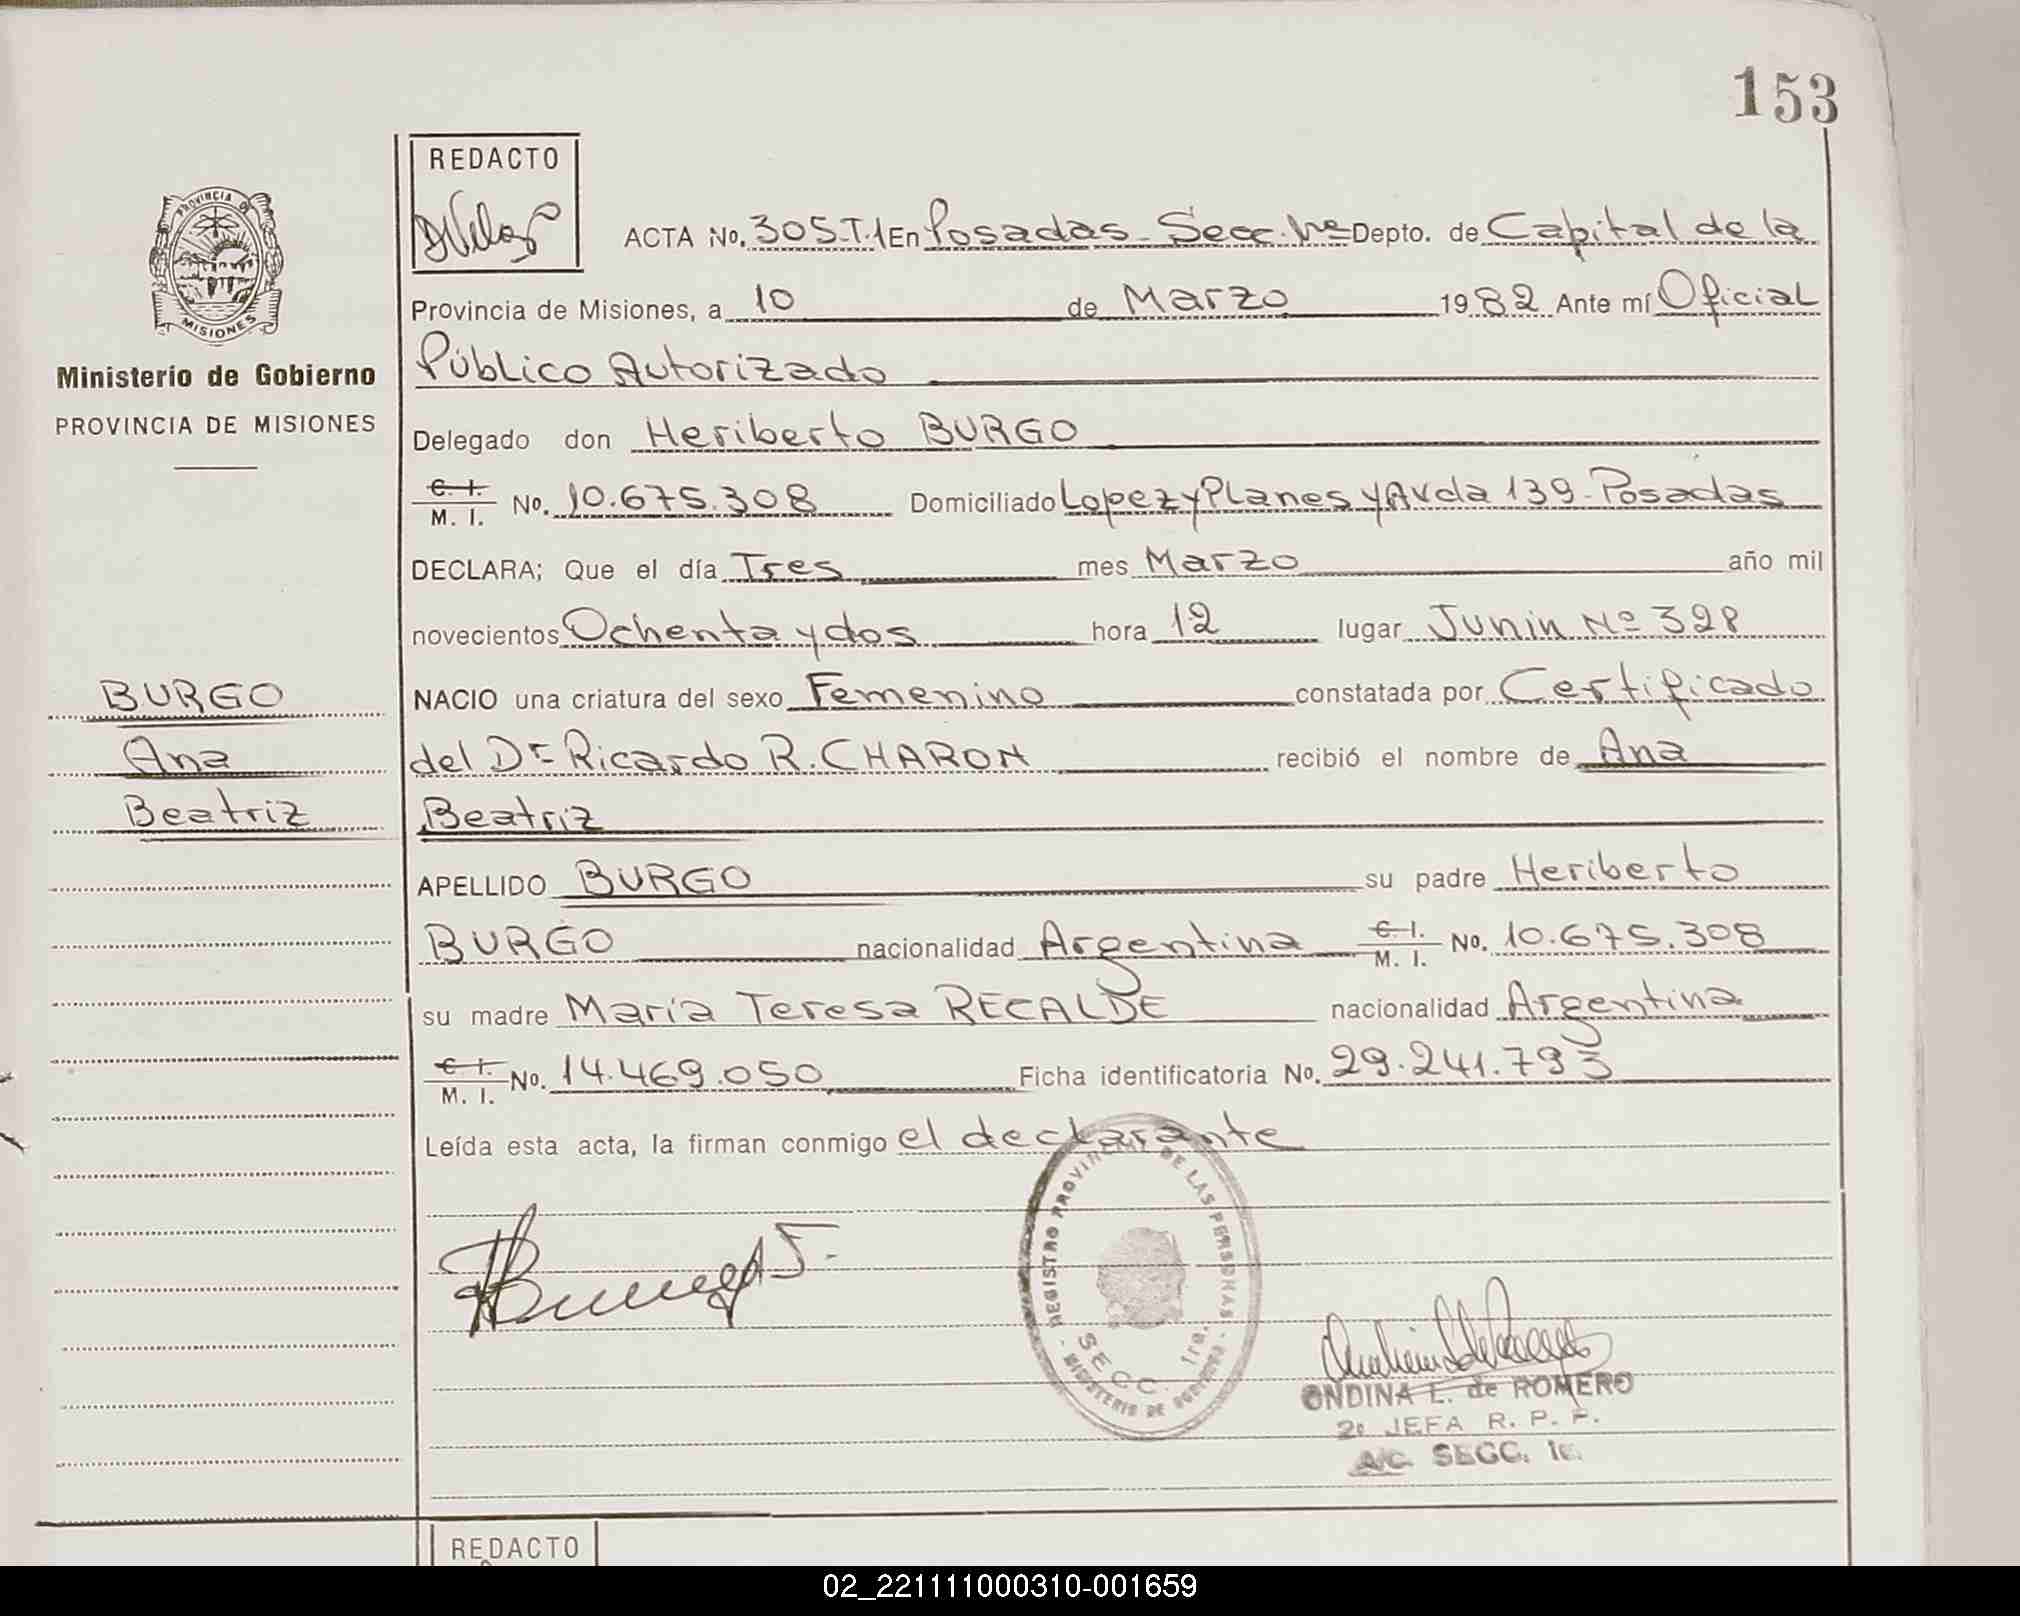 153
REDACTO
PROVINCIA DE
MISIONES
Ministerio de Gobierno
PROVINCIA DE MISIONES
ACTA No. 305-T.1 En Posadas - Secc. 1ra Depto. de Capital de la
Provincia de Misiones, a 10 de Marzo 1982 Ante mí Oficial
Público Autorizado
Delegado don Heriberto BURGO
C. I. / M. I. No. 10.675.308 Domiciliado Lopez y Planes y Avda 139 - Posadas
DECLARA; Que el día Tres mes Marzo año mil
novecientos Ochenta y dos hora 12 lugar Junin Nº 328
NACIO una criatura del sexo Femenino constatada por Certificado
del Dr Ricardo R. CHARON recibió el nombre de Ana
Beatriz
BURGO
Ana
Beatriz
APELLIDO BURGO su padre Heriberto
BURGO nacionalidad Argentina C. I. / M. I. No. 10.675.308
su madre María Teresa RECALDE nacionalidad Argentina
C. I. / M. I. No. 14.469.050 Ficha identificatoria No. 29.241.793
Leída esta acta, la firman conmigo el declarante
REGISTRO PROVINCIAL DE LAS PERSONAS
SECC. 1ra.
MINISTERIO DE GOBIERNO
ONDINA L. de ROMERO
2º JEFA R. P. P.
A/C. SECC. 1ª.
REDACTO
02_221111000310-001659